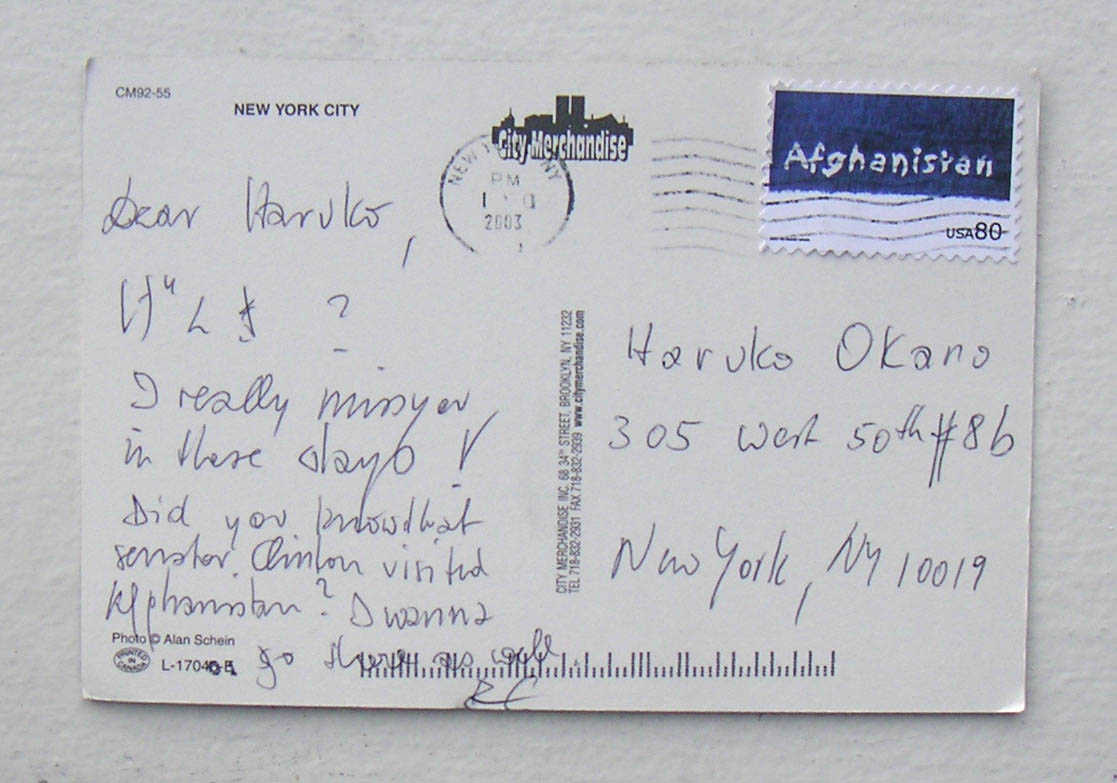 CM92-55
NEW YORK CITY
City Merchandise
NEW Y NY
PM
2003
Afghanistan
USA 80
Dear Haruko,
?
I really miss you
in these days !
Did you know that
senator Clinton visited
Afghanistan? I wanna
go there as well
Photo © Alan Schein
PRINTED IN CANADA
CITY MERCHANDISE, INC. 68 34TH STREET, BROOKLYN, NY 11232
TEL 718-832-2931 FAX 718-832-2939 www.citymerchandise.com
Haruko Okano
305 west 50th #8b
New York, NY 10019